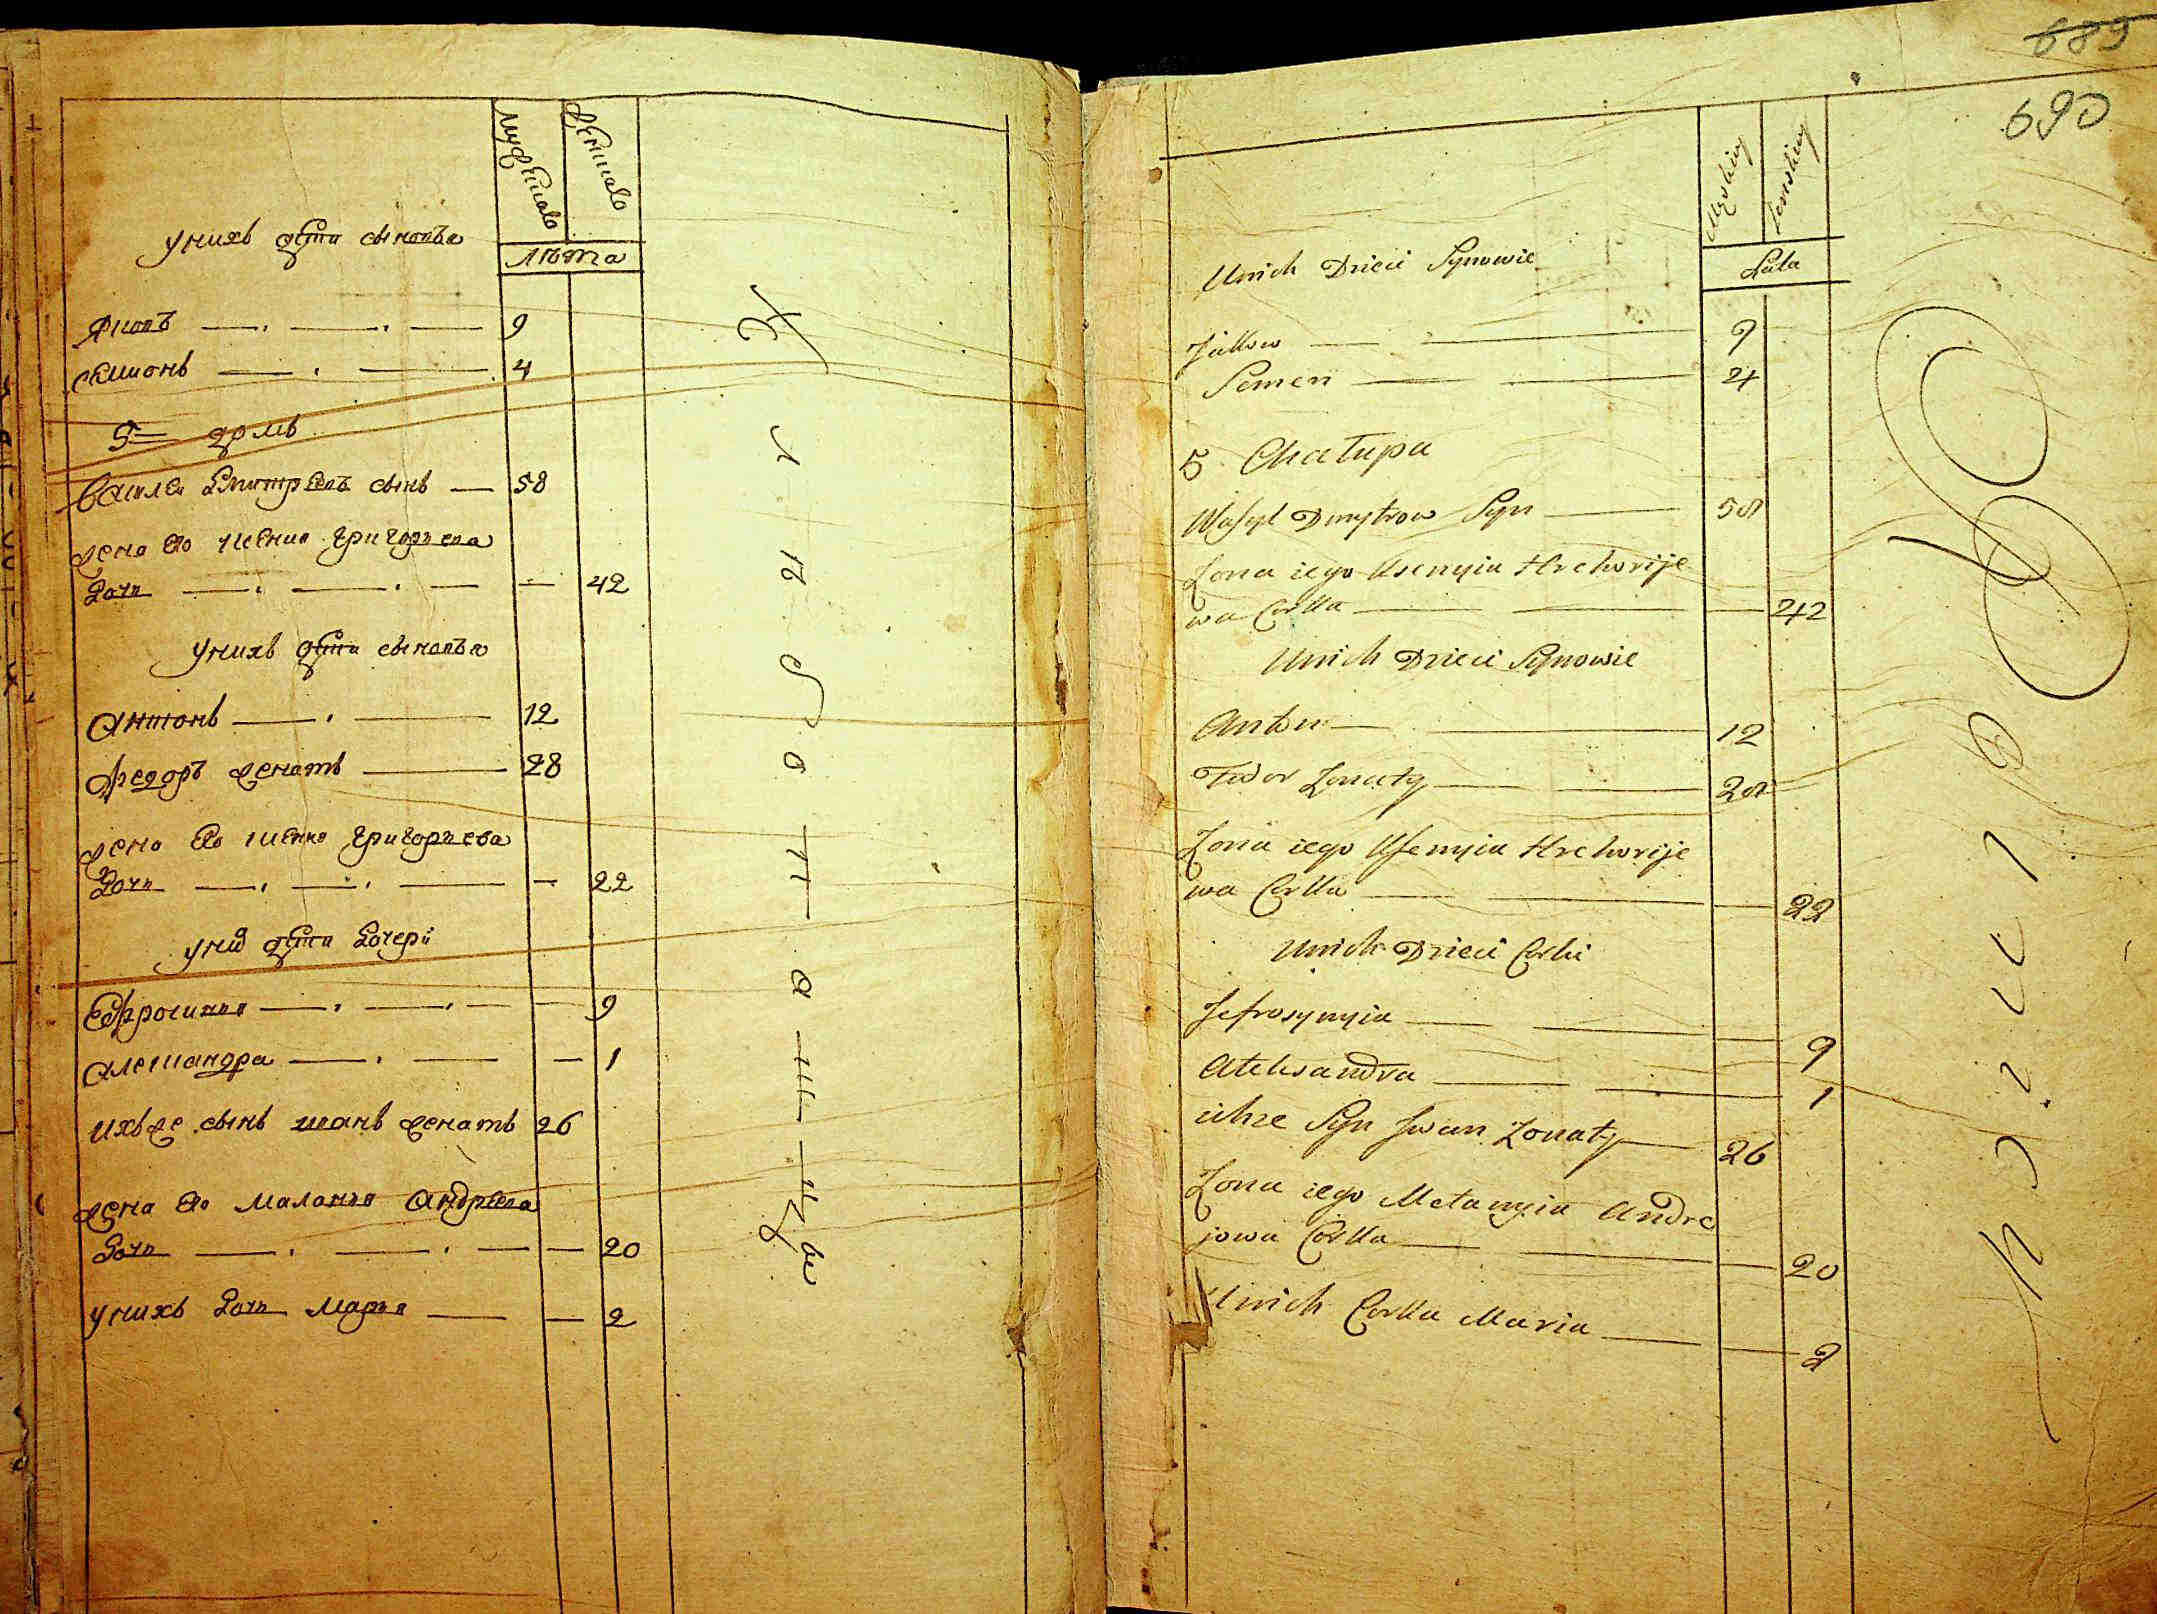 Мужеска
Женска
Лѣта
У нихъ дѣти сыновья
Яковъ 9
Семионъ 4
5 домъ
Василей Дмитревъ сынъ 58
жена его Ксения Григорьева
дочь 42
У нихъ дѣти сыновья
Антонъ 12
Федоръ женатъ 28
жена его Ксения Григорьева
дочь 22
У них дѣти дочери
Ефросиния 9
Александра 1
ихъ же сынъ иванъ женатъ 26
жена его Маланья Андреева
дочь 20
У нихъ дочь Марья 2
689
690
Męskiey
Żenskiey
Lata
Unich Dzieci Synowie
Jakow 9
Semen 4
5 Chałupa
Wasyl Dmytrow Syn 58
Żona iego Ksenyia Hrehorije
wa Corka 42
Unich Dzieci Synowie
Anton 12
Fedor Żonaty 28
Żona iego Ksenyia Hrehorije
wa Corka 22
Unich Dzieci Corki
Jefrosynyia 9
Aleksandra 1
ichże Syn Jwan Żonaty 26
Żona iego Melanyia Andre
jowa Corka 20
Unich Corka Maria 2